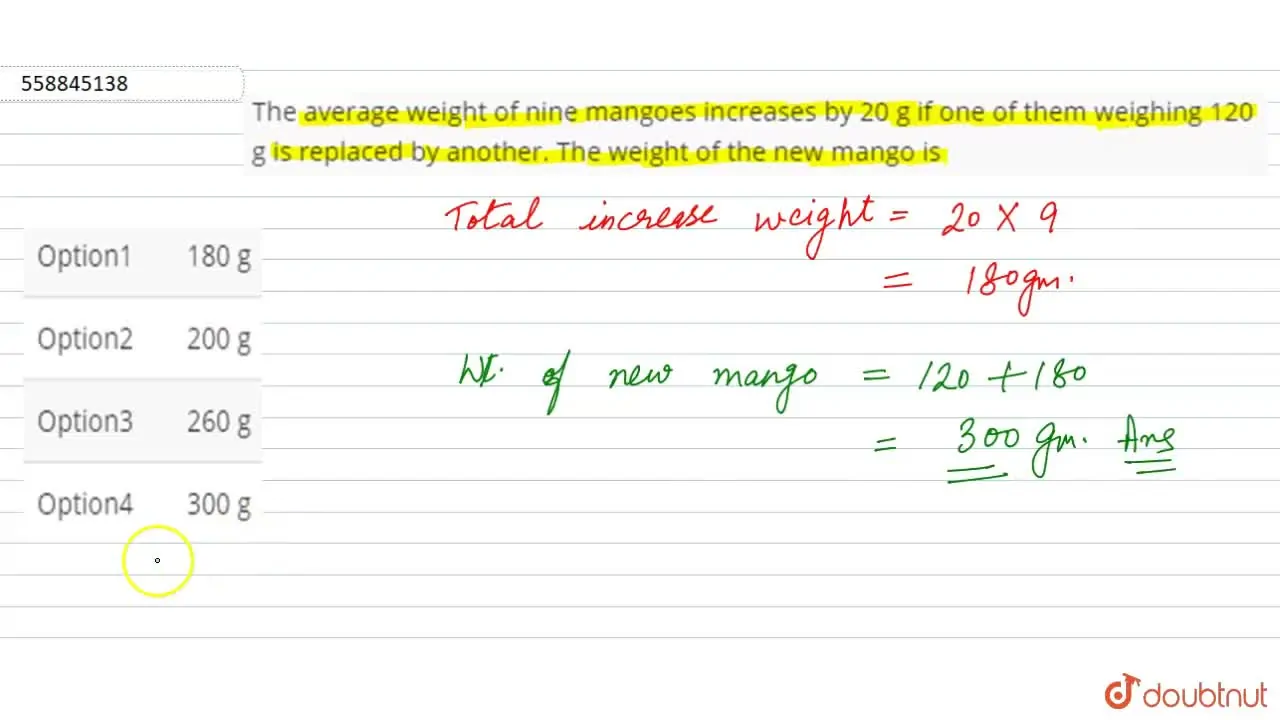 558845138
The average weight of nine mangoes increases by 20 g if one of them weighing 120
g is replaced by another. The weight of the new mango is
Total increase weight = 20 X 9
= 180gm.
Option1 180 g
Option2 200 g
Option3 260 g
Option4 300 g
Wt. of new mango = 120 + 180
= 300 gm. Ans
doubtnut